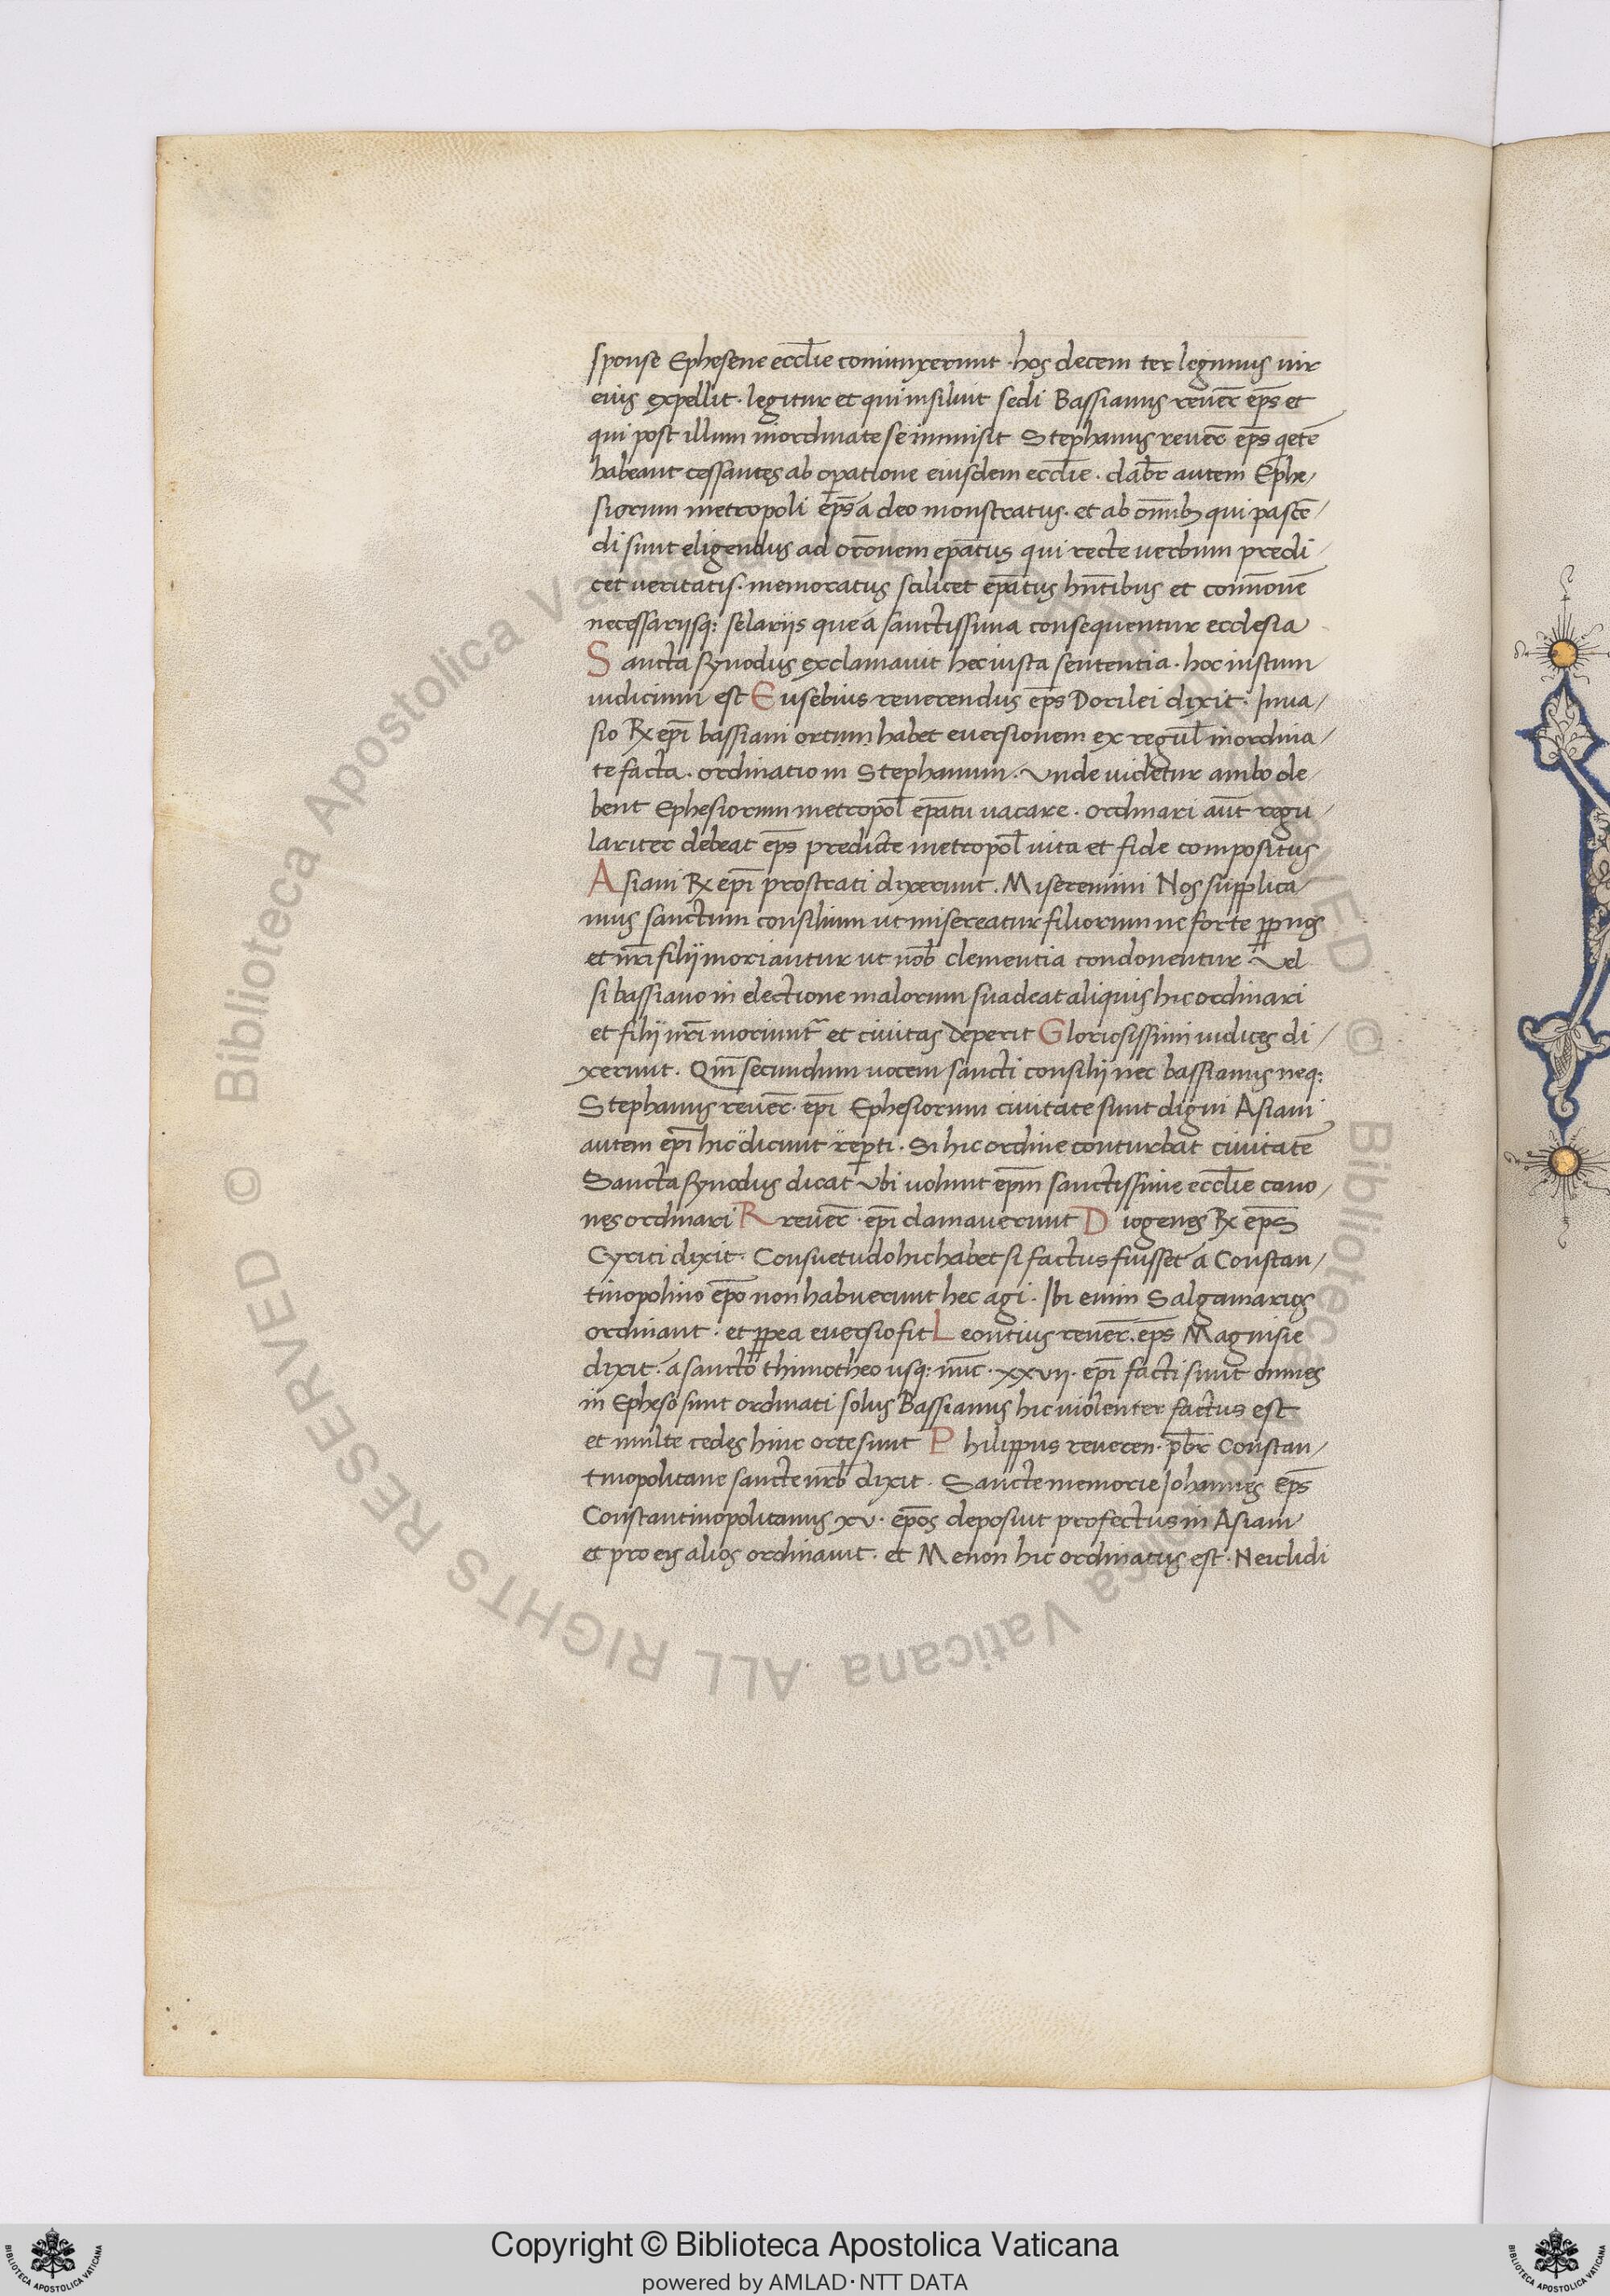 sponse Ephesene eccl̄ie coniunxerunt · hos decem ter legimus uir
eius expellit · legitur et qui insiluit sedi Bassianus reuer̄ ep̄s et
qui post illum inordinate se inmisit Stephanus reuer̄ ep̄s
habeant cessantes ab op̲atione eiusdem eccl̄ie · dab̄r autem Ephe/
siorum metropoli ep̄s a deo monstratus · et ab om̄ib; qui pascē/
di sunt eligendus ad or̄onem ep̄atus qui recte uerbum predi/
cet ueritatis · memoratus scilicet ep̄atus hn̄tibus et com̄onē
necessariisq: selariis que a sanctissima consequentur ecclesia
Sancta synodus exclamauit hec iusta sententia · hoc iustum
iudicium est Eusebius reuerendus ep̄s Dorilei dixit · Inua/
sio R̨ ep̄i bassiani ortum habet euersionem ex regul̄ inordina/
te facta · ordinatio in Stephanum · Vnde uidetur ambo de/
bent Ephesiorum metropol̄ ep̄atu uacare · ordinari aūt regu/
lariter debeat ep̄s predicte metropol̄ uita et fide compositus
Asiani R̨ ep̄i prostrati dixerunt · Miseremini Nos supplica/
mus sanctum consilium ut misereatur filiorum ne forte pp̲ nos
et nr̄i filij moriantur ut nob̄ clementia condonentur · Vel
si bassiano in electione malorum suadeat aliquis hic ordinari
et filij nr̄i moriunt̄ et ciuitas deperit Gloriosissimi iudices di/
xerunt · Qm̄ secundum uocem sancti consilij nec bassianus neq:
Stephanus reuer̄ · ep̄i Ephesiorum ciuitate sunt digni Asiani
autem ep̄i hic dicunt rep̲ti · Si hic ordine conturbat ciuitatē
Sancta synodus dicat Vbi uolunt ep̄m sanctissime eccl̄ie cano/
nes ordinari R reuer̄ · ep̄i clamauerunt Diogenes R̨ ep̄s
Cyzici dixit · Consuetudo hic habet si factus fuisset a Constan/
tinopolino ep̄o non habuerunt hec agi · Ibi enim Salgamarios
ordinant · et pp̲ea euersio fit Leontius reuer̄ · ep̄s Magnisie
dixit · a sancto thimotheo usq: nūc · xxvii · ep̄i facti sunt omnes
in Epheso sunt ordinati solus Bassianus hic uiolenter factus est
et multe cedes hinc orte sunt Philippus reueren · pb̄r Constan/
tinopolitane sancte urb̄ dixit · Sancte memorie Johannes ep̄s
Constantinopolitanus xv · ep̄os deposuit profectus in Asiam
et pro eis alios ordinauit · et Menon hic ordinatus est ·
Copyright © Biblioteca Apostolica Vaticana
powered by AMLAD·NTT DATA
© Biblioteca Apostolica Vaticana ALL RIGHTS RESERVED
BIBLIOTECA APOSTOLICA VATICANA
BIBLIOTECA APOSTOLICA VATICANA